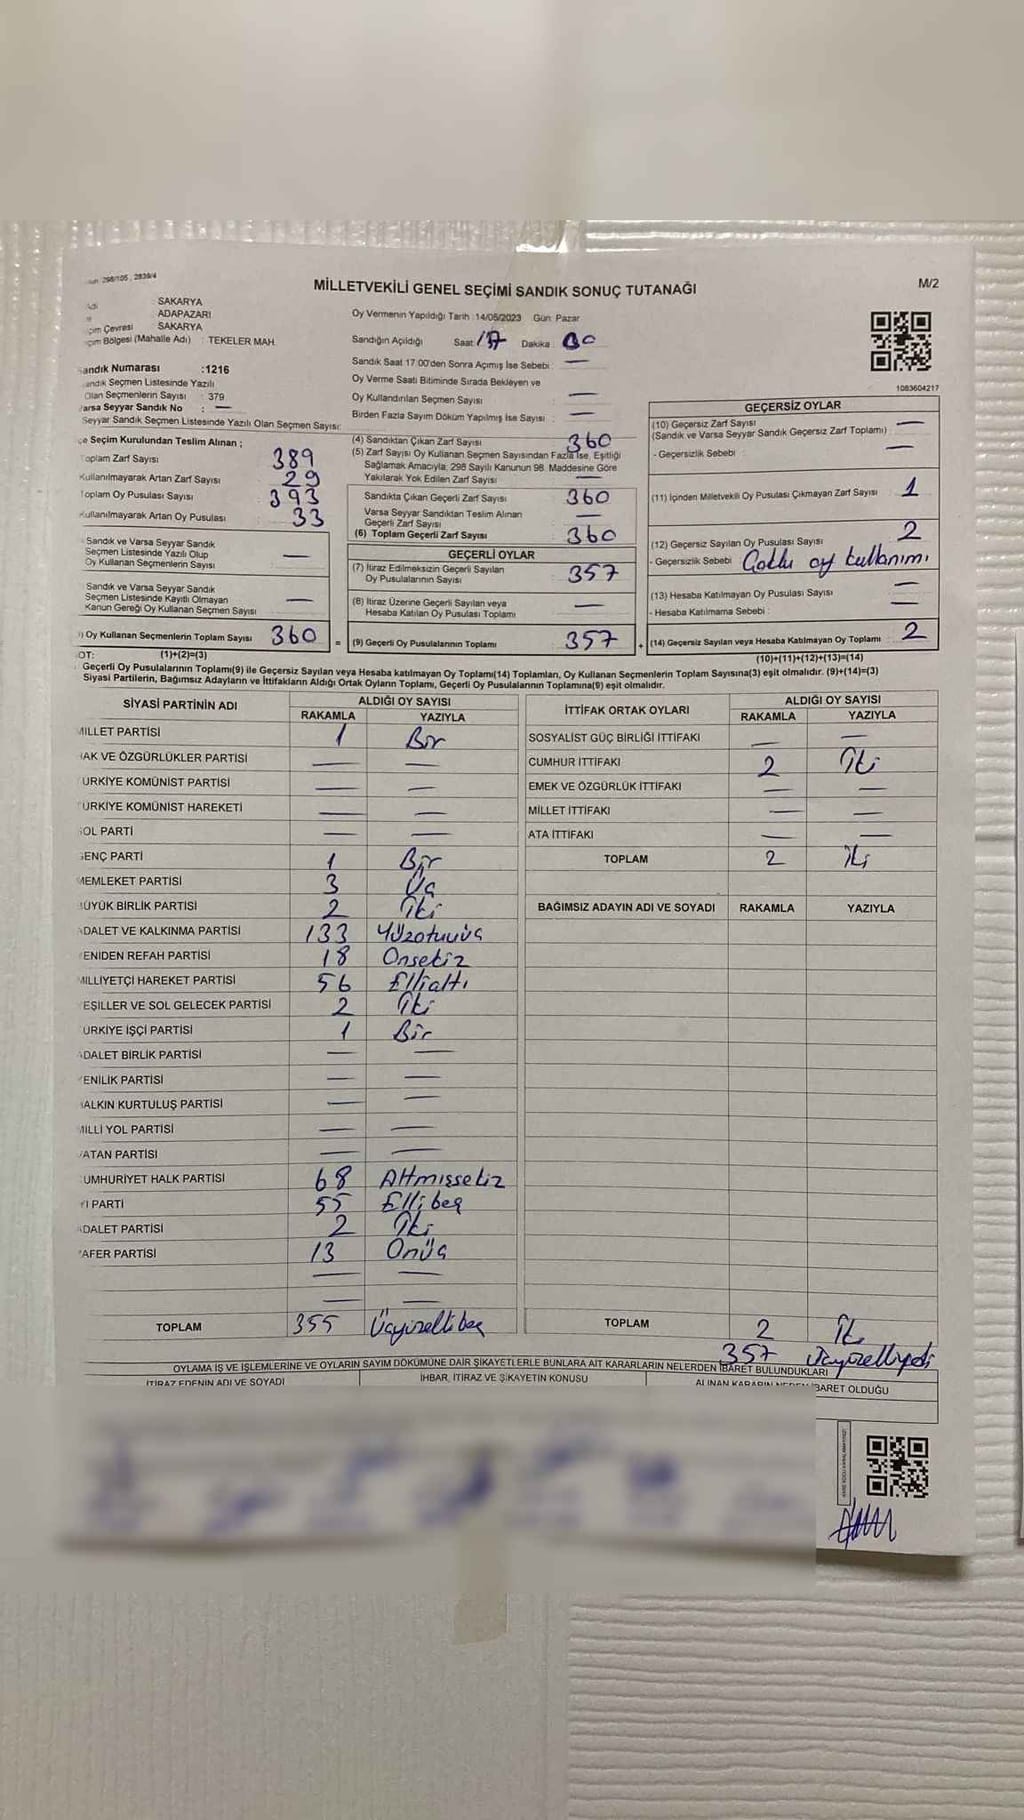 298/105 , 2839/4
M/2
MİLLETVEKİLİ GENEL SEÇİMİ SANDIK SONUÇ TUTANAĞI
SAKARYA
ADAPAZARI
Çevresi SAKARYA
Bölgesi (Mahalle Adı) : TEKELER MAH.
Sandık Numarası :1216
Sandık Seçmen Listesinde Yazılı
Olan Seçmenlerin Sayısı : 379
Varsa Seyyar Sandık No : —
Seyyar Sandık Seçmen Listesinde Yazılı Olan Seçmen Sayısı:
Oy Vermenin Yapıldığı Tarih :14/05/2023 Gün: Pazar
Sandığın Açıldığı Saat: 17 Dakika: 00
Sandık Saat 17:00'den Sonra Açımış İse Sebebi : —
Oy Verme Saati Bitiminde Sırada Bekleyen ve
Oy Kullandırılan Seçmen Sayısı : —
Birden Fazla Sayım Döküm Yapılmış İse Sayısı : —
1083604217
Seçim Kurulundan Teslim Alınan ;
Toplam Zarf Sayısı 389
Kullanılmayarak Artan Zarf Sayısı 29
Toplam Oy Pusulası Sayısı : 393
Kullanılmayarak Artan Oy Pusulası : 33
Sandık ve Varsa Seyyar Sandık
Seçmen Listesinde Yazılı Olup
Oy Kullanan Seçmenlerin Sayısı —
Sandık ve Varsa Seyyar Sandık
Seçmen Listesinde Kayıtlı Olmayan
Kanun Gereği Oy Kullanan Seçmen Sayısı —
Oy Kullanan Seçmenlerin Toplam Sayısı 360 =
(1)+(2)=(3)
(4) Sandıktan Çıkan Zarf Sayısı 360
(5) Zarf Sayısı Oy Kullanan Seçmen Sayısından Fazla İse, Eşitliği
Sağlamak Amacıyla, 298 Sayılı Kanunun 98. Maddesine Göre
Yakılarak Yok Edilen Zarf Sayısı —
Sandıkta Çıkan Geçerli Zarf Sayısı 360
Varsa Seyyar Sandıktan Teslim Alınan
Geçerli Zarf Sayısı —
(6) Toplam Geçerli Zarf Sayısı 360
GEÇERLİ OYLAR
(7) İtiraz Edilmeksizin Geçerli Sayılan
Oy Pusulalarının Sayısı 357
(8) İtiraz Üzerine Geçerli Sayılan veya
Hesaba Katılan Oy Pusulası Toplamı —
(9) Geçerli Oy Pusulalarının Toplamı 357 +
GEÇERSİZ OYLAR
(10) Geçersiz Zarf Sayısı —
(Sandık ve Varsa Seyyar Sandık Geçersiz Zarf Toplamı)
- Geçersizlik Sebebi : —
(11) İçinden Milletvekili Oy Pusulası Çıkmayan Zarf Sayısı 1
(12) Geçersiz Sayılan Oy Pusulası Sayısı 2
- Geçersizlik Sebebi Çoklu oy kullanımı
(13) Hesaba Katılmayan Oy Pusulası Sayısı —
- Hesaba Katılmama Sebebi : —
(14) Geçersiz Sayılan veya Hesaba Katılmayan Oy Toplamı 2
(10)+(11)+(12)+(13)=(14)
OT:
Geçerli Oy Pusulalarının Toplamı(9) ile Geçersiz Sayılan veya Hesaba katılmayan Oy Toplamı(14) Toplamları, Oy Kullanan Seçmenlerin Toplam Sayısına(3) eşit olmalıdır. (9)+(14)=(3)
Siyasi Partilerin, Bağımsız Adayların ve İttifakların Aldığı Ortak Oyların Toplamı, Geçerli Oy Pusulalarının Toplamına(9) eşit olmalıdır.
SİYASİ PARTİNİN ADI ALDIĞI OY SAYISI
RAKAMLA YAZIYLA
MİLLET PARTİSİ 1 Bir
HAK VE ÖZGÜRLÜKLER PARTİSİ — —
TÜRKİYE KOMÜNİST PARTİSİ — —
TÜRKİYE KOMÜNİST HAREKETİ — —
SOL PARTİ — —
GENÇ PARTİ 1 Bir
MEMLEKET PARTİSİ 3 Üç
BÜYÜK BİRLİK PARTİSİ 2 İki
ADALET VE KALKINMA PARTİSİ 133 Yüzotuzüç
YENİDEN REFAH PARTİSİ 18 Onsekiz
MİLLİYETÇİ HAREKET PARTİSİ 56 Ellialtı
YEŞİLLER VE SOL GELECEK PARTİSİ 2 İki
TÜRKİYE İŞÇİ PARTİSİ 1 Bir
ADALET BİRLİK PARTİSİ — —
YENİLİK PARTİSİ — —
HALKIN KURTULUŞ PARTİSİ — —
MİLLİ YOL PARTİSİ — —
VATAN PARTİSİ — —
CUMHURİYET HALK PARTİSİ 68 Altmışsekiz
İYİ PARTİ 55 Ellibeş
ADALET PARTİSİ 2 İki
ZAFER PARTİSİ 13 Onüç
— —
— —
TOPLAM 355 Üçyüzellibeş
İTTİFAK ORTAK OYLARI ALDIĞI OY SAYISI
RAKAMLA YAZIYLA
SOSYALİST GÜÇ BİRLİĞİ İTTİFAKI — —
CUMHUR İTTİFAKI 2 İki
EMEK VE ÖZGÜRLÜK İTTİFAKI — —
MİLLET İTTİFAKI — —
ATA İTTİFAKI — —
TOPLAM 2 İki
BAĞIMSIZ ADAYIN ADI VE SOYADI RAKAMLA YAZIYLA
TOPLAM 2 İki
357 Üçyüzelliyedi
OYLAMA İŞ VE İŞLEMLERİNE VE OYLARIN SAYIM DÖKÜMÜNE DAİR ŞİKAYETLERLE BUNLARA AİT KARARLARIN NELERDEN İBARET BULUNDUKLARI
İTİRAZ EDENİN ADI VE SOYADI İHBAR, İTİRAZ VE ŞİKAYETİN KONUSU ALINAN KARARIN NEDEN İBARET OLDUĞU